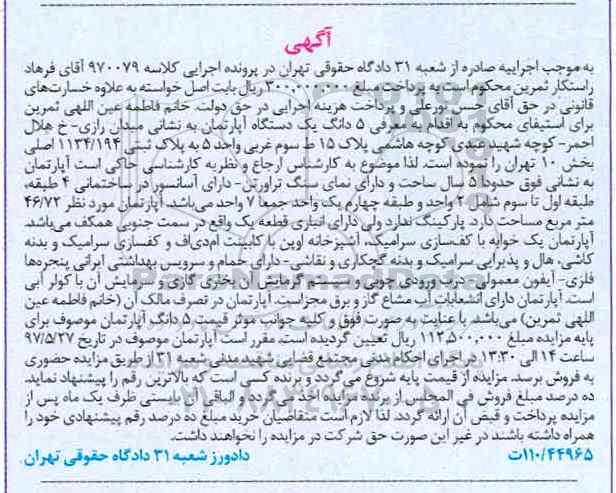 آگهی
به موجب اجراییه صادره از شعبه ۳۱ دادگاه حقوقی تهران در پرونده اجرایی کلاسه ۹۷۰۰۷۹ آقای فرهاد
راستکار ثمرین محکوم است به پرداخت مبلغ ۳۰۰,۰۰۰,۰۰۰ ریال بابت اصل خواسته به علاوه خسارت‌های
قانونی در حق آقای حسن نورعلی و پرداخت هزینه اجرایی در حق دولت. خانم فاطمه عین اللهی ثمرین
برای استیفای محکوم به اقدام به معرفی ۵ دانگ یک دستگاه آپارتمان به نشانی میدان رازی- خ هلال
احمر- کوچه شهید عبدی کوچه هاشمی پلاک ۱۵ ط سوم غربی واحد ۵ به پلاک ثبتی ۱۱۳۴/۱۹۴ اصلی
بخش ۱۰ تهران را نموده است. لذا موضوع به کارشناس ارجاع و نظریه کارشناسی حاکی است آپارتمان
به نشانی فوق حدودا ۵ سال ساخت و دارای نمای سنگ تراورتن- دارای آسانسور در ساختمانی ۴ طبقه،
طبقه اول تا سوم شامل ۲ واحد و طبقه چهارم یک واحد جمعا ۷ واحد می‌باشد. آپارتمان مورد نظر ۴۶/۷۲
متر مربع مساحت دارد. پارکینگ ندارد ولی دارای انباری قطعه یک واقع در سمت جنوبی همکف می‌باشد.
آپارتمان یک خوابه با کف‌سازی سرامیک، آشپزخانه اوپن با کابینت ام‌دی‌اف و کفسازی سرامیک و بدنه
کاشی، هال و پذیرایی سرامیک و بدنه گچکاری و نقاشی- دارای حمام و سرویس بهداشتی ایرانی پنجره‌ها
فلزی- آیفون معمولی- درب ورودی چوبی و سیستم گرمایش آن بخاری گازی و سرمایش آن با کولر آبی
است. آپارتمان دارای انشعابات آب مشاع گاز و برق مجزاست. آپارتمان در تصرف مالک آن (خانم فاطمه عین
اللهی ثمرین) می‌باشد. با عنایت به صورت فوق و کلیه جوانب موثر قیمت ۵ دانگ آپارتمان موصوف برای
پایه مزایده مبلغ ۱۱۲,۵۰۰,۰۰۰ ریال تعیین گردیده است. مقرر است آپارتمان موصوف در تاریخ ۹۷/۵/۲۷
ساعت ۱۴ الی ۱۳:۳۰ در اجرای احکام مدنی مجتمع قضایی شهید مدنی شعبه ۳۱ از طریق مزایده حضوری
به فروش برسد. مزایده از قیمت پایه شروع می‌گردد و برنده کسی است که بالاترین رقم را پیشنهاد نماید.
ده درصد مبلغ فروش فی المجلس از برنده مزایده اخذ می‌گردد و الباقی را بایستی ظرف یک ماه پس از
مزایده پرداخت و قبض آن ارائه گردد. لذا لازم است متقاضیان خرید مبلغ ده درصد رقم پیشنهادی خود را
همراه داشته باشند در غیر این صورت حق شرکت در مزایده را نخواهند داشت.
۱۱۰/۴۴۹۶۵ت دادورز شعبه ۳۱ دادگاه حقوقی تهران